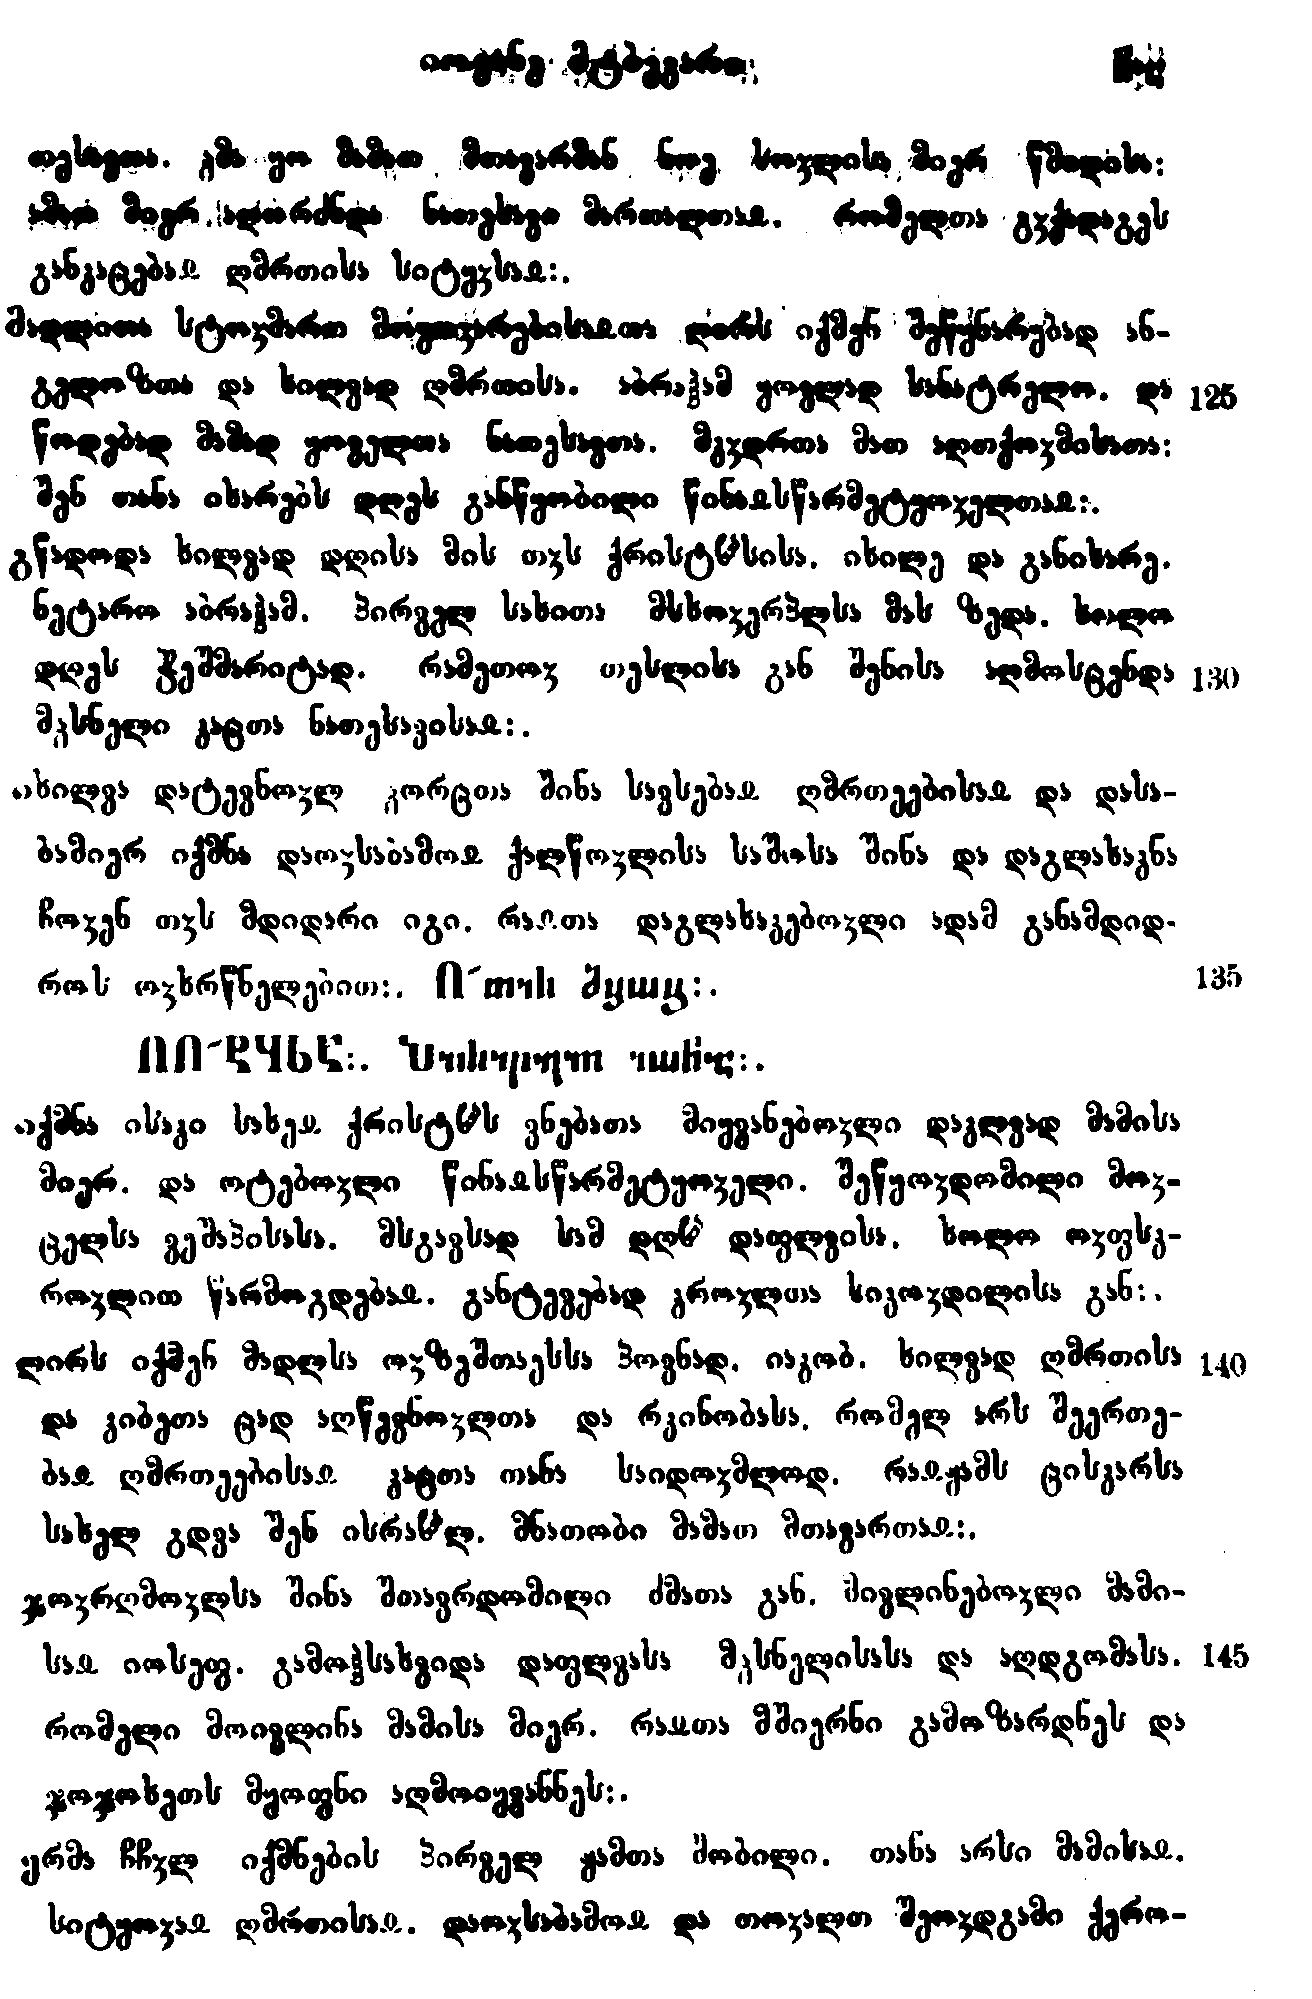 იოვანე მტბევარი
თესავთა. კმა უო მამათ მთავარმან ნოე სოჳლისა მიერ წმიდისა:
ამათ მიერ აღორძნდა ნათესავი მართალთაჲ. რომელთა გჳქადაგეს
განკაცებაჲ ღმრთისა სიტყჳსაჲ:.
მადლითა სტოჳმართ მოყოჳარებისაჲთა ღირს იქმენ შეწყნარებად ან-
გელოზთა და ხილვად ღმრთისა. აბრაჰამ ყოვლად სანატრელო. და 125
წოდებად მამად ყოველთა ნათესავთა. მკჳდრთა მათ აღთქოჳმისათა:
შენ თანა იხარებს დღეს განწყობილი წინაჲსწარმეტყოჳელთაჲ:.
გწადოდა ხილვად დღისა მის თჳს ქრისტჱსისა. იხილე და განიხარე.
ნეტარო აბრაჰამ. პირველ სახითა მსხოჳერპლსა მას ზედა. ხოლო
დღეს ჭეშმარიტად. რამეთოჳ თესლისა გან შენისა აღმოსცენდა 130
მჴსნელი კაცთა ნათესავისაჲ:.
იხილვა დატევნოჳლ ჴორცთა შინა სავსებაჲ ღმრთეებისაჲ და დასა-
ბამიერ იქმნა დაოჳსაბამოჲ ქალწოჳლისა საშოსა შინა და დაგლახაკნა
ჩოჳენ თჳს მდიდარი იგი. რაჲთა დაგლახაკებოჳლი ადამ განამდიდ-
როს ოჳხრწნელებით:. Ⴈ~ ⴇⴣⴑ ⴋⴗⴀⴚ:. 135
იქმნა ისაკი სახეჲ ქრისტჱს ვნებათა მიყვანებოჳლი დაკლვად მამისა
მიერ. და ოტებოჳლი წინაჲსწარმეტყოჳელი. შეწყოჳდომილი მოჳ-
ცელსა ვეშაპისასა. მსგავსად სამ დღჱ დაფლვისა. ხოლო ოჳფსკ-
როჳლით წარმოგდებაჲ. განტევებად კროჳლთა სიკოჳდილისა გან:.
ღირს იქმენ მადლსა ოჳზეშთაესსა პოვნად. იაკობ. ხილვად ღმრთისა 140
და კიბეთა ცად აღწევნოჳლთა და რკინობასა. რომელ არს შეერთე-
ბაჲ ღმრთეებისაჲ კაცთა თანა საიდოჳმლოდ. რაჲჟამს ცისკარსა
სახელ გდვა შენ ისრაჱლ. მნათობი მამათ მთავართაჲ:.
ჯოჳრღმოჳლსა შინა შთავრდომილი ძმათა გან. მივლინებოჳლი მამი-
საჲ იოსეფ. გამოჰსახვიდა დაფლვასა მჴსნელისასა და აღდგომასა. 145
რომელი მოივლინა მამისა მიერ. რაჲთა მშიერნი გამოზარდნეს და
ჯოჯოხეთს მყოფნი აღმოიყვანნეს:.
ყრმა ჩჩჳლ იქმნების პირველ ჟამთა შობილი. თანა არსი მამისაჲ.
სიტყოჳაჲ ღმრთისაჲ. დაოჳსაბამოჲ და თოჳალთ შეოჳდგამი ქერო-